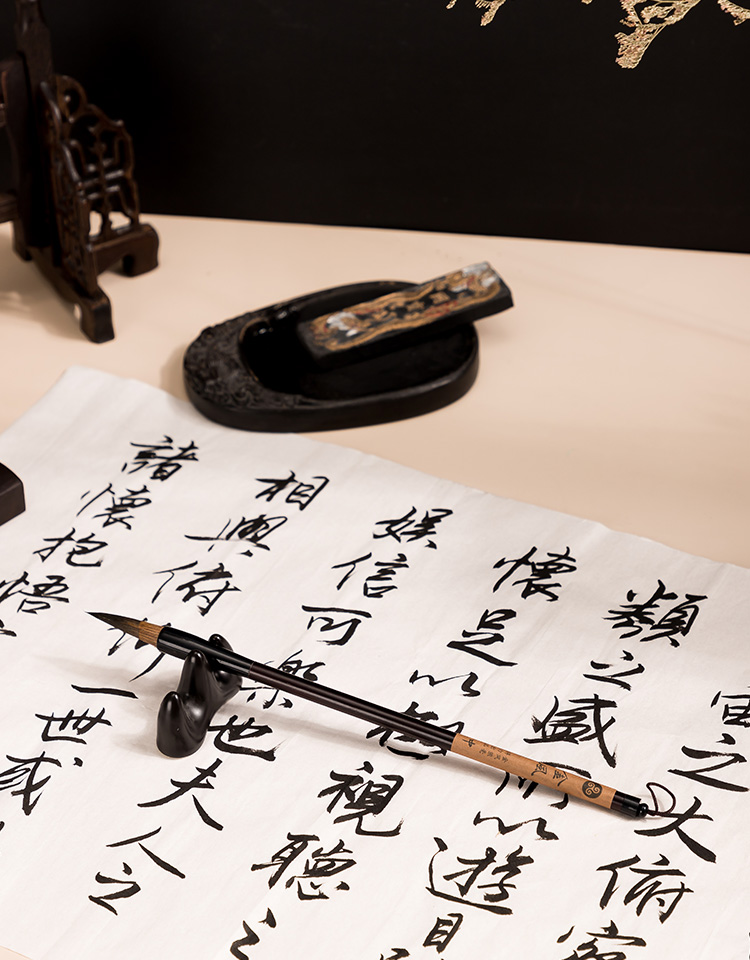 宙之大俯察
類之盛所以遊目
懷足以視聽之
娛信可樂也夫人之
相與俯一世或
諸懷抱悟
金鼎